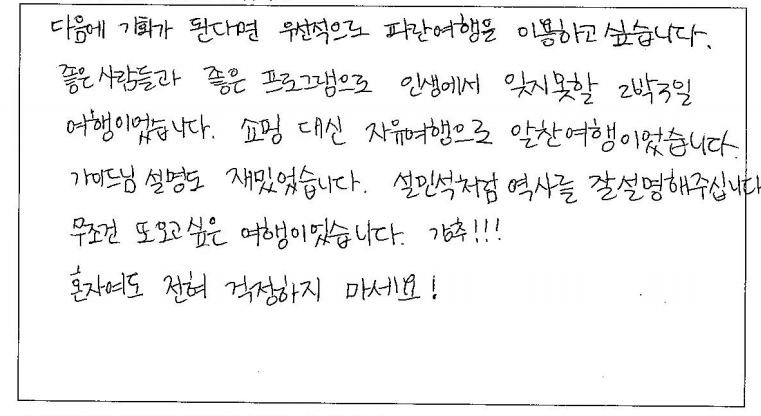 다음에 기회가 된다면 우선적으로 파란여행을 이용하고 싶습니다.
좋은사람들과 좋은 프로그램으로 인생에서 잊지못할 2박3일
여행이었습니다. 쇼핑 대신 자유여행으로 알찬여행이었습니다.
가이드님 설명도 재밌었습니다. 설민석처럼 역사를 잘설명해주십니다
무조건 또오고싶은 여행이었습니다. 강추!!!
혼자여도 전혀 걱정하지 마세요!